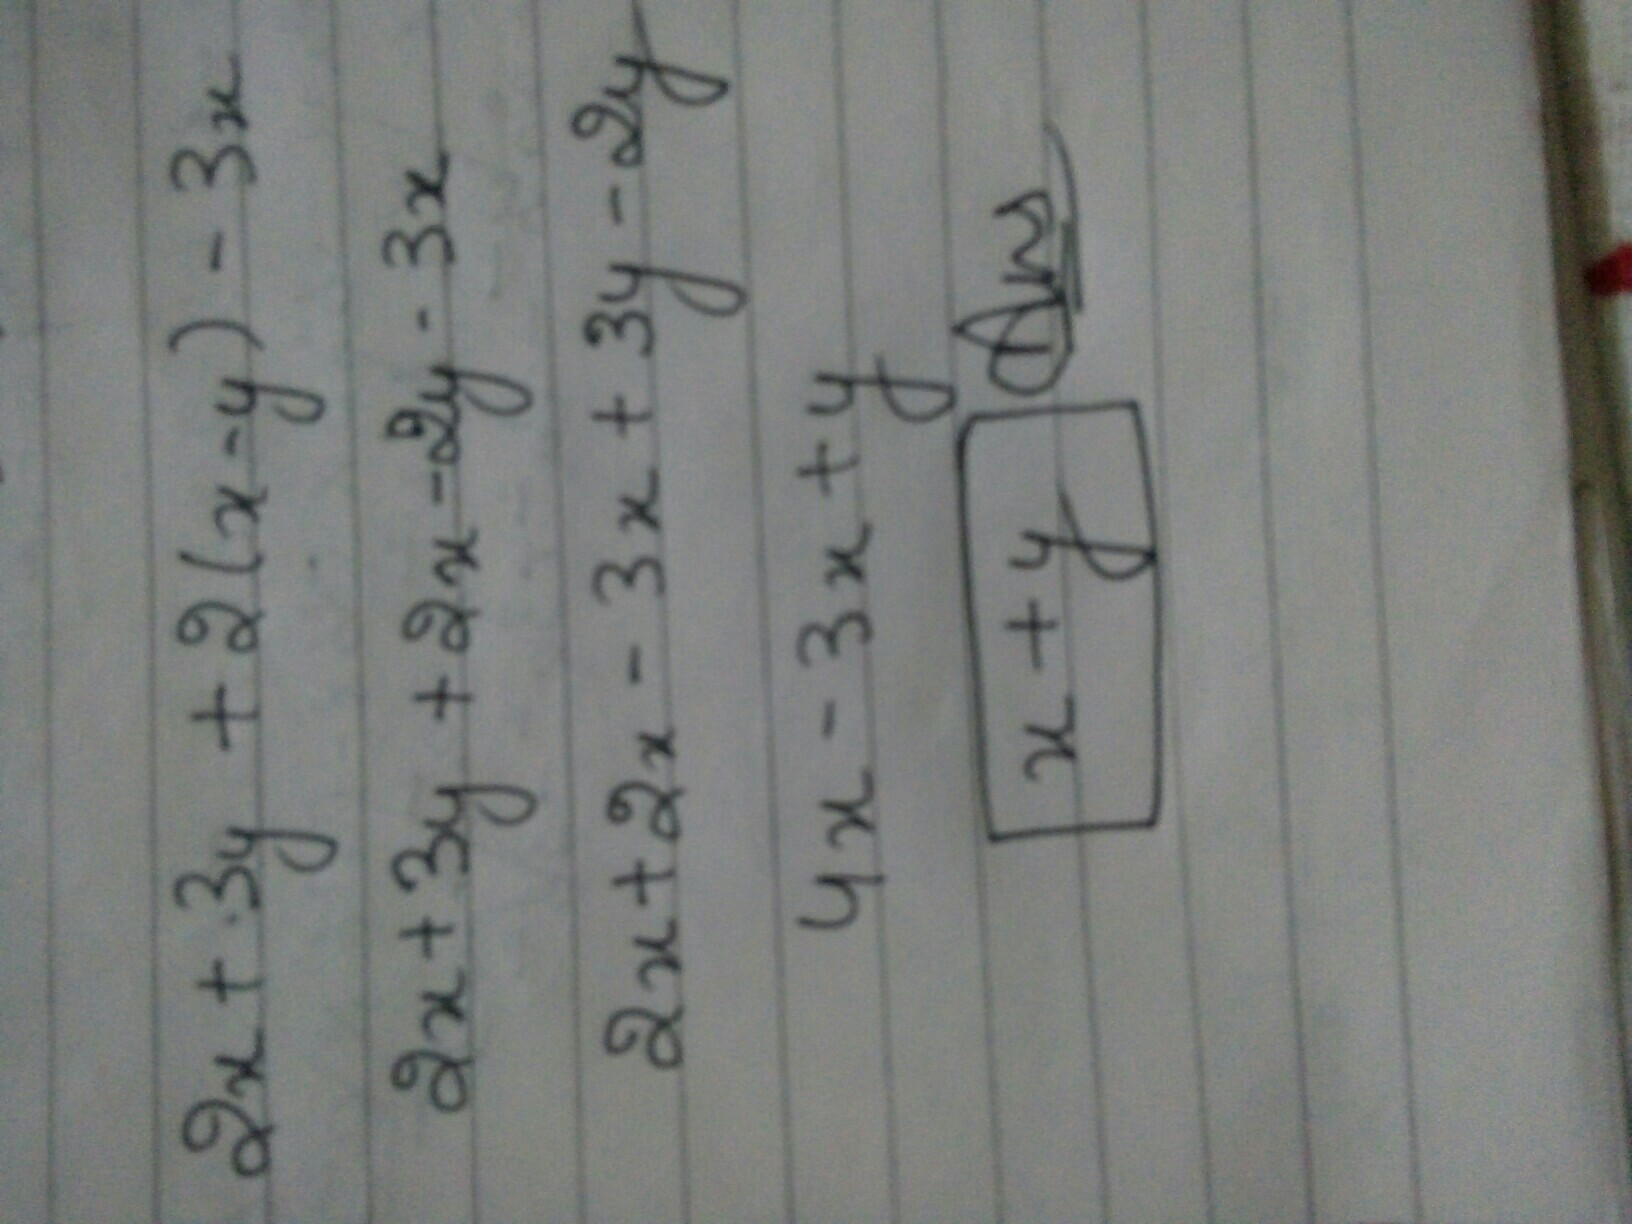 2x + 3y + 2(x-y) - 3x
2x + 3y + 2x - 2y - 3x
2x + 2x - 3x + 3y - 2y
4x - 3x + y
x + y Ans